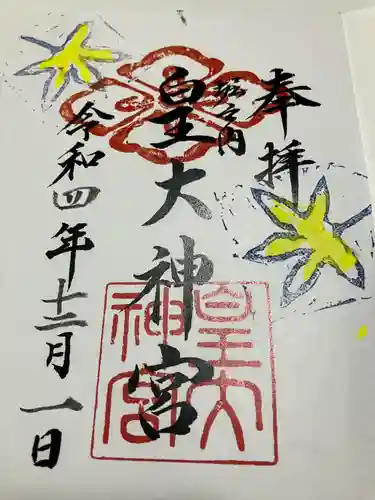 奉拝
堀之内
皇大神宮
令和四年十二月一日
皇大
神宮